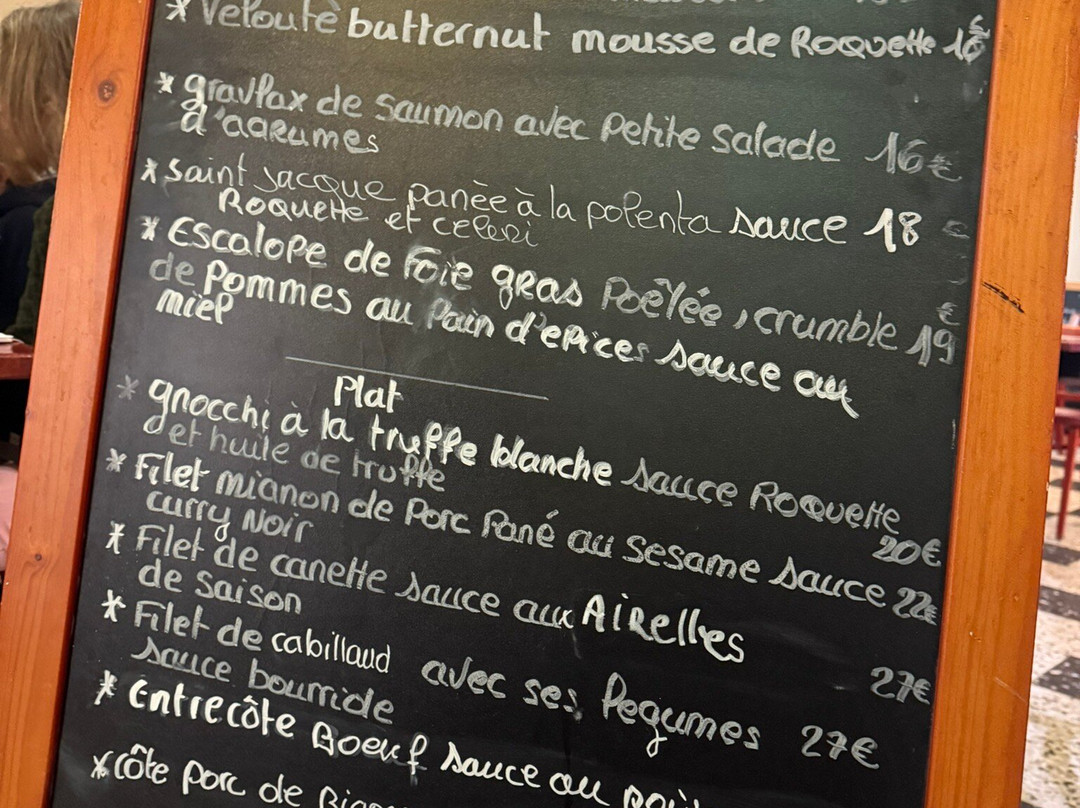 * Velouté butternut mousse de Roquette 16€
* gravlax de Saumon avec Petite Salade 16€
d'agrumes
* saint Jacque panèe à la polenta sauce 18€
Roquette et celeri
* Escalope de Foie gras Poêlée, crumble 19€
de Pommes au Pain d'epices sauce au
miel
Plat
* gnocchi à la truffe blanche sauce Roquette
et huile de truffe 20€
* Filet mignon de Porc Pané au Sesame sauce 22€
curry Noir
* Filet de canette sauce aux AiRelles
de Saison 27€
* Filet de cabillaud avec ses legumes 27€
sauce bourride
* Entrecôte Boeuf sauce au
* côte porc de